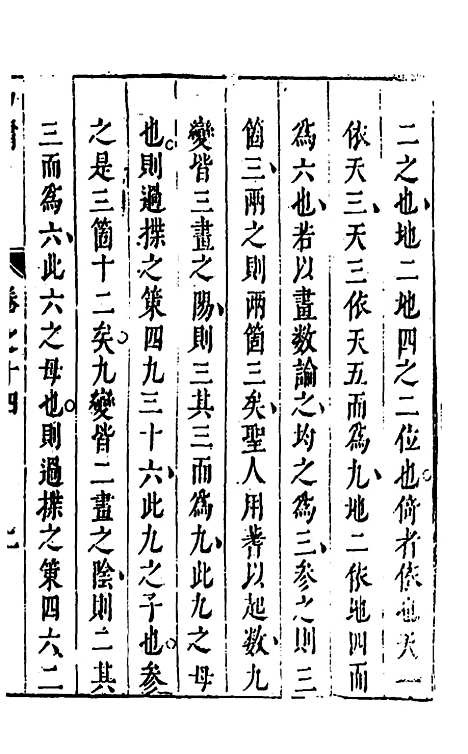 二之也地二地四之二位也倚者依也天一
依天三天三依天五而為九地二依地四而
為六也若以畫數論之均之為三参之則三
箇三兩之則兩箇三矣聖人用蓍以起數九
變皆三畫之陽則三其三而為九此九之母
也則過揲之策四九三十六此九之子也参
之是三箇十二矣九變皆二畫之陰則二其
三而為六此六之母也則過揲之策四六二
卷之十四